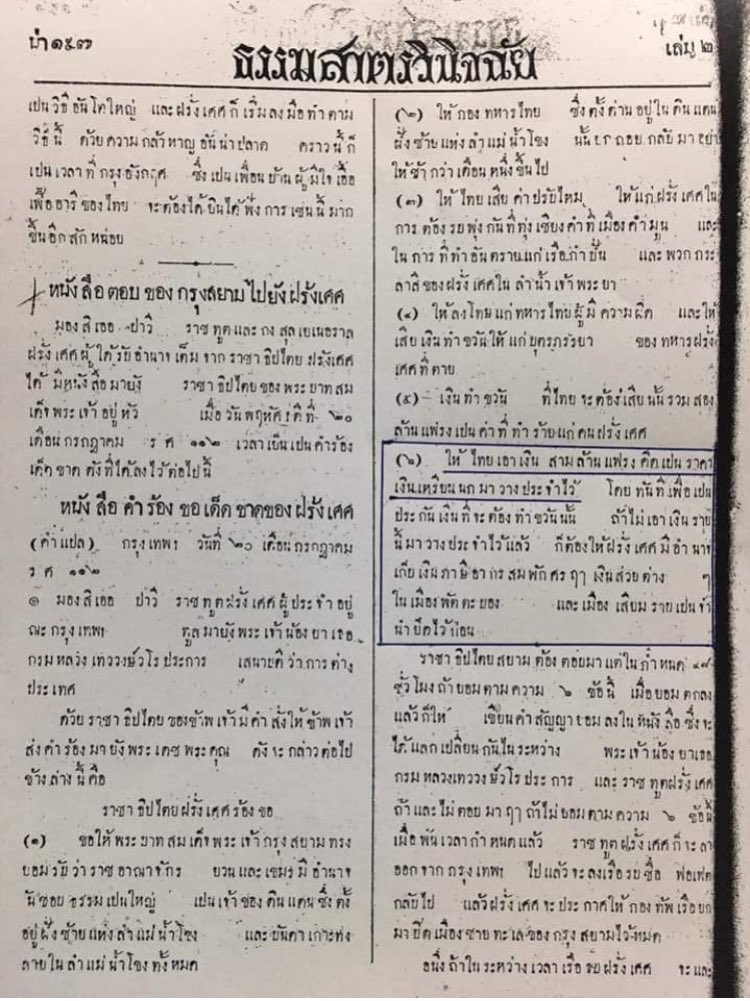 น่า ๑๙๗
ธรรมสาตรวินิจฉัย
เล่ม ๒
เปนวิธีอันโตใหญ่ และฝรั่งเศศก็เริ่มลงมือทำตาม
วิธีนี้ ด้วยความกล้าหาญอันน่าปลาด คราวนี้ก็
เปนเวลาที่กรุงอังกฤศ ซึ่งเปนเพื่อนบ้านผู้มีใจเอื้อ
เฟื้ออารีของไทย จะต้องได้ยินได้ฟังการเช่นนี้มาก
ขึ้นอีกสักหน่อย
หนังสือตอบของกรุงสยามไปยังฝรั่งเศศ
มองสิเออ ปาวี ราชทูตและกงสุลเยเนอราล
ฝรั่งเศศผู้ได้รับอำนาจเต็มจากราชาธิปไตยฝรั่งเศศ
ได้มีหนังสือมายัง ราชาธิปไตยของพระบาทสม
เด็จพระเจ้าอยู่หัว เมื่อวันพฤหัศบดีที่ ๒๐
เดือนกรกฎาคม ร ศ ๑๑๒ เวลาเย็นเปนคำร้อง
เด็ดขาด ดังที่ได้ลงไว้ต่อไปนี้
หนังสือคำร้องขอเด็ดขาดของฝรั่งเศศ
(คำแปล) กรุงเทพฯ วันที่ ๒๐ เดือนกรกฎาคม
ร ศ ๑๑๒
๑ มองสิเออ ปาวี ราชทูตฝรั่งเศศผู้ประจำอยู่
ณะกรุงเทพฯ ทูลมายังพระเจ้าน้องยาเธอ
กรมหลวงเทววงษ์วโรประการ เสนาบดีว่าการต่าง
ประเทศ
ด้วยราชาธิปไตยของข้าพเจ้ามีคำสั่งให้ข้าพเจ้า
ส่งคำร้องมายังพระเดชพระคุณ ดังจะกล่าวต่อไป
ข้างล่างนี้คือ
ราชาธิปไตยฝรั่งเศศร้องขอ
(๑) ขอให้พระบาทสมเด็จพระเจ้ากรุงสยามทรง
ยอมรับว่าราชอาณาจักร์ ยวนและเขมรมีอำนาจ
อันชอบธรรมเปนใหญ่ เปนเจ้าของดินแดนซึ่งตั้ง
อยู่ฝั่งซ้ายแห่งลำแม่น้ำโขง และบันดาเกาะทั้ง
ลายในลำแม่น้ำโขงทั้งหมด
(๒) ให้กองทหารไทย ซึ่งตั้งด่านอยู่ในดินแดน
ฝั่งซ้ายแห่งลำแม่น้ำโขง นั้นยกถอยกลับมาอย่า
ให้ช้ากว่าเดือนหนึ่งขึ้นไป
(๓) ให้ไทยเสียค่าปรับไหม ให้แก่ฝรั่งเศศใน
การต้องรบพุ่งกันที่ทุ่งเชียงคำที่เมืองคำมูน และ
ในการที่ทำอันตรายแก่เรือกำปั่น และพวกกะ
ลาสีของฝรั่งเศศในลำน้ำเจ้าพระยา
(๔) ให้ลงโทษแก่ทหารไทยผู้มีความผิด และให้
เสียเงินทำขวันให้แก่บุตรภรรยา ของทหารฝรั่ง
เศศที่ตาย
(๕) เงินทำขวัน ที่ไทยจะต้องเสียนั้นรวมสอง
ล้านแฟรงเปนค่าที่ทำร้ายแก่คนฝรั่งเศศ
(๖) ให้ไทยเอาเงิน สามล้านแฟรงคิดเปนราคา
เงินเหรียนนกมาวางประจำไว้ โดยทันทีเพื่อเปน
ประกันเงินที่จะต้องทำขวันนั้น ถ้าไม่เอาเงินราย
นี้มาวางประจำไว้แล้ว ก็ต้องให้ฝรั่งเศศมีอำนาจ
เก็บเงินภาษีอากรสมพักศรฤๅเงินส่วยต่าง ๆ
ในเมืองพัตตะบอง และเมืองเสียมราบเปนจำ
นำยึดไว้ก่อน
ราชาธิปไตยสยามต้องตอบมาแต่ในกำหนด ๔๘
ชั่วโมงถ้ายอมตามความ ๖ ข้อนี้ เมื่อยอมตกลง
แล้วก็ให้ เขียนคำสัญญายอมลงในหนังสือซึ่งจะ
ได้แลกเปลี่ยนกันในระหว่าง พระเจ้าน้องยาเธอ
กรมหลวงเทววงษ์วโรประการ และราชทูตฝรั่งเศศ
ถ้าและไม่ตอบมาฤๅถ้าไม่ยอมตามความ ๖ ข้อนี้
เมื่อพ้นเวลากำหนดแล้ว ราชทูตฝรั่งเศศก็จะลา
ออกจากกรุงเทพฯ ไปแล้วจะลงเรือรบชื่อ ฟอเฟต
กลับไป แล้วฝรั่งเศศจะประกาศให้กองทัพเรือยก
มายึดเมืองชายทะเลของกรุงสยามไว้หมด
อนึ่งถ้าในระหว่างเวลาเรือรบฝรั่งเศศ จะและ